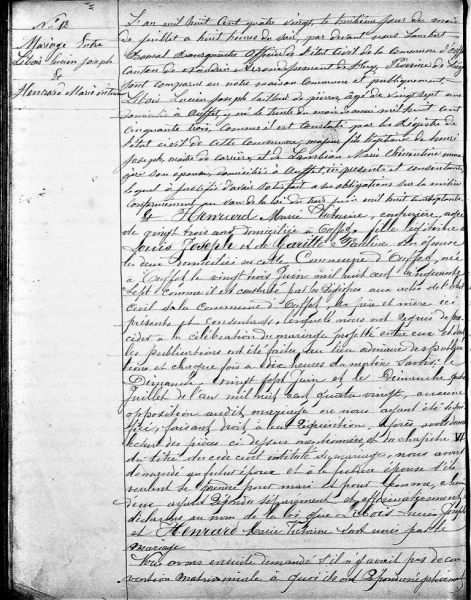 N° 13
Mariage Entre
Lebois Lucien Joseph
&
Henrard Marie Victoire
L'an mil huit Cent quatre vingt, le huitième jour du mois
de juillet à huit heures du soir, par devant nous Lambert
Bourgmestre Officier de l'état Civil de la Commune d'Ouffet
Canton de Nandrin Arrondissement de Huy, Province de Liège
sont comparus en notre maison Commune et publiquement
Lucien Joseph tailleur de pierres, âgé de vingt sept ans
domicilié à Ouffet, y né le trente du mois de mai mil huit cent
cinquante trois, comme il est constaté par les Registres de
l'Etat civil de cette Commune, majeur fils légitime de
Joseph, maître de carrière, et de Marie Clémentine
son épouse, domiciliés à Ouffet, ici présents et consentants
lequel a justifié d'avoir satisfait à ses obligations sur la milice
conformément au de la loi du trois juin mil huit cent septante
Et Henrard Marie Victoire, couturière, âgée
de vingt trois ans domiciliée à Ouffet, fille légitime de
Louis Joseph et de Pauline son épouse
les deux domiciliés en cette Commune d'Ouffet, née
à Ouffet le vingt trois Juin mil huit cent cinquante
sept, comme il est constaté par les Registres aux actes de l'état
Civil de la Commune d'Ouffet les père et mère ici
présents et consentants, lesquels nous ont requis de pro
céder à la célébration du mariage projetté entre eux et dont
les publications ont été faites au lieu ordinaire des publica
tions et chaque fois à dix heures du matin savoir: le
Dimanche vingt sept Juin et le Dimanche quatre
Juillet de l'an mil huit cent quatre vingt, aucune
opposition audit mariage ne nous ayant été signi
fiée, faisant droit à leur réquisition, après avoir donné
lecture des pièces ci dessus mentionnées et du chapitre VI
du titre du code civil intitulé du mariage, nous avons
demandé au futur époux et à la future épouse s'ils
veulent se prendre pour mari et pour femme, chacun
d'eux ayant répondu séparément et affirmativement
déclarons au nom de la loi que Lebois Lucien Joseph
et Henrard Marie Victoire sont unis par le
mariage
Nous avons ensuite demandé s'il n'y avait pas de con
vention matrimoniale à quoi ils ont répondu négativement